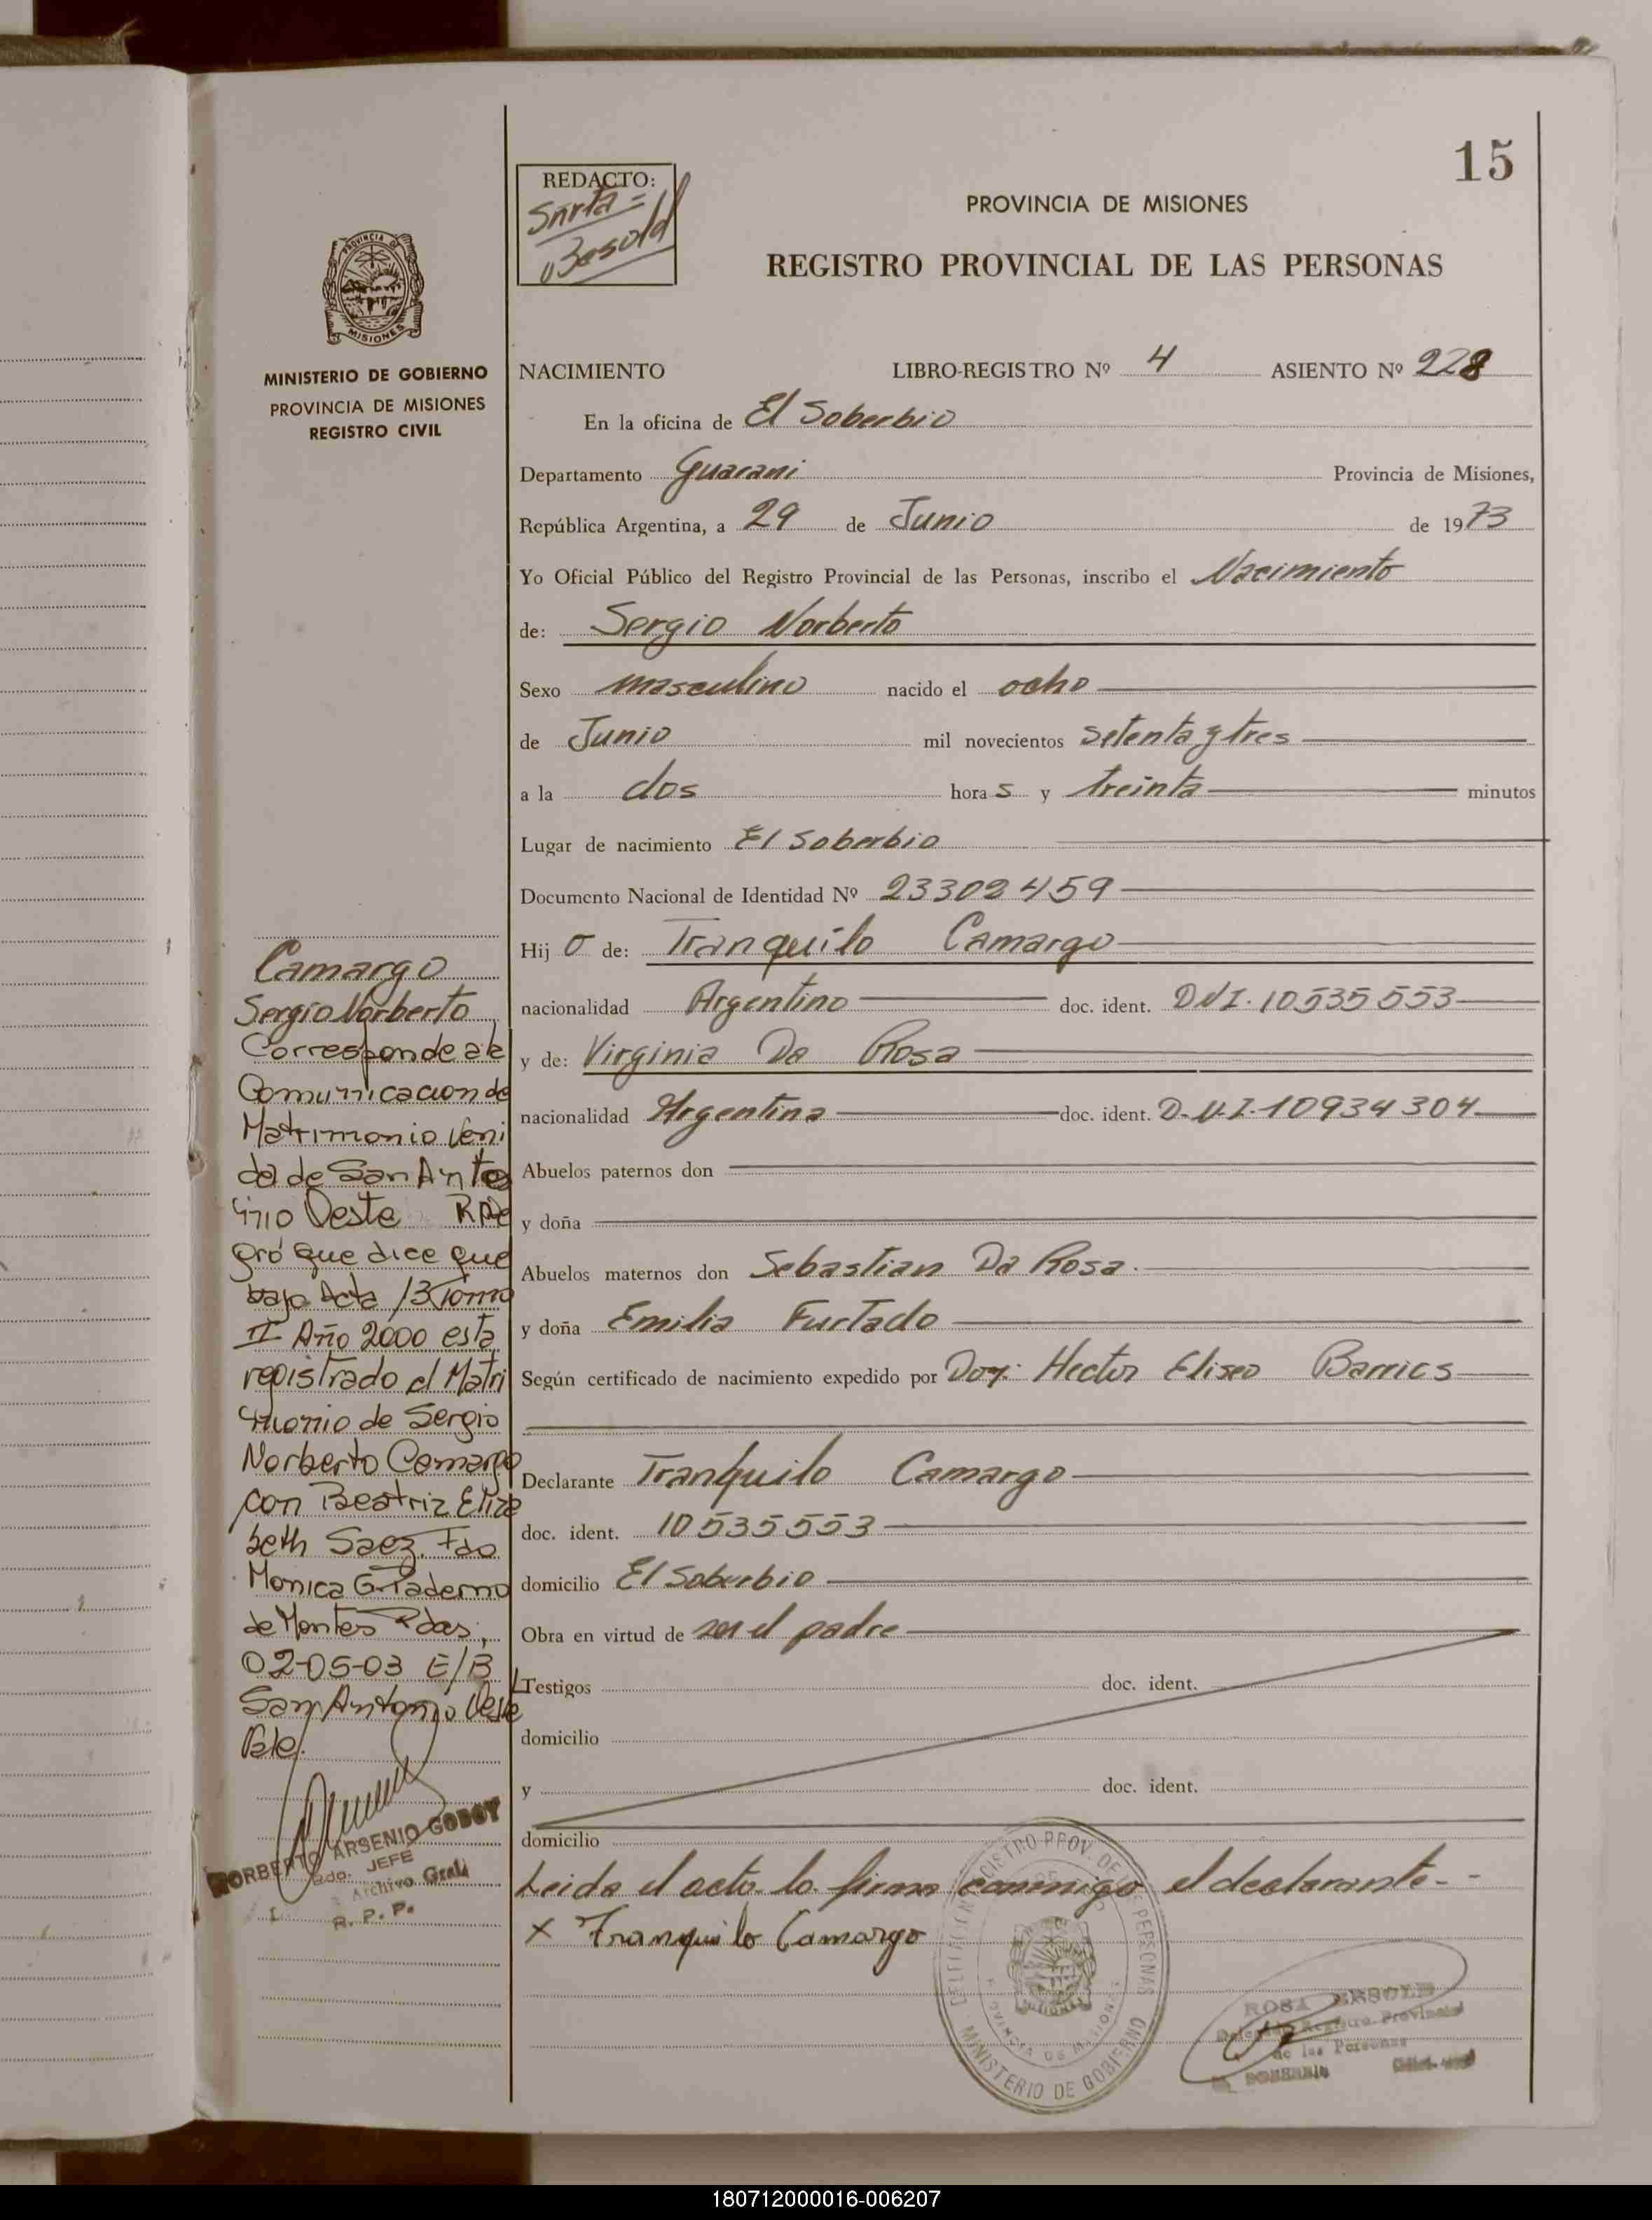 15
REDACTO:
Besold
PROVINCIA DE MISIONES
REGISTRO PROVINCIAL DE LAS PERSONAS
PROVINCIA DE
MISIONES
MINISTERIO DE GOBIERNO
PROVINCIA DE MISIONES
REGISTRO CIVIL
NACIMIENTO LIBRO-REGISTRO Nº 4 ASIENTO Nº 228
En la oficina de El Soberbio
Departamento Guarani Provincia de Misiones,
República Argentina, a 29 de Junio de 1973
Yo Oficial Público del Registro Provincial de las Personas, inscribo el Nacimiento
de: Sergio Norberto
Sexo masculino nacido el ocho
de Junio mil novecientos setenta y tres
a la dos hora s y treinta minutos
Lugar de nacimiento El Soberbio
Documento Nacional de Identidad Nº 23302459
Hij o de: Tranquilo Camargo
nacionalidad Argentino doc. ident. DNI. 10535553
y de: Virginia Da Rosa
nacionalidad Argentina doc. ident. D.N.I. 10934304
Abuelos paternos don
y doña
Abuelos maternos don Sebastian Da Rosa.
y doña Emilia Furtado
Según certificado de nacimiento expedido por Hector Eliseo Barrios
Declarante Tranquilo Camargo
doc. ident. 10535553
domicilio El Soberbio
Obra en virtud de ser el padre
Testigos doc. ident.
domicilio
y doc. ident.
domicilio
Leida el acta la firma conmigo el declarante.-
x Tranquilo Camargo
Camargo
Sergio Norberto
Corresponde a la
Comunicacion de
Matrimonio Veni
da de San Anto
nio Oeste R. Ne
gro que dice que
bajo Acta 13 Tomo
II Año 2000 esta
registrado el Matri
monio de Sergio
Norberto Camargo
con Beatriz Eliza
beth Saez. Fdo
Monica G. Paderno
de Montes Pdas.,
02-05-03 E/B
San Antonio Oeste
Vale.
NORBERTO ARSENIO GODOY
JEFE
Archivo Gral.
R. P. P.
REGISTRO PROV. DE LAS PERSONAS
PROVINCIA DE MISIONES
MINISTERIO DE GOBIERNO
ROSA BESOLD
Registro Provincial
de las Personas
SOBERBIO
180712000016-006207